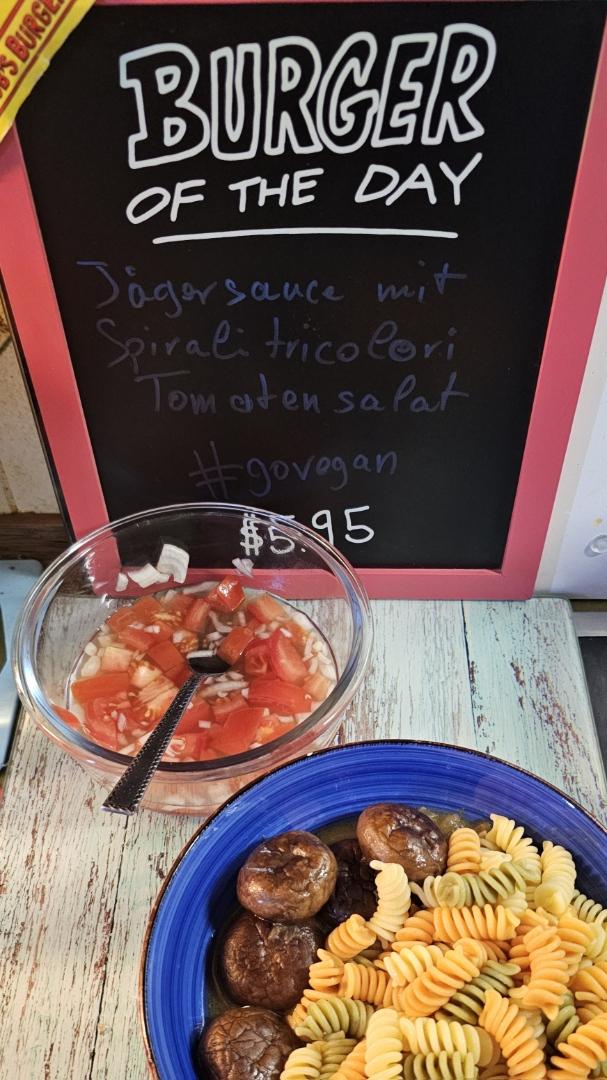 B'S BURGER
BURGER
OF THE DAY
Jägersauce mit
Spirali tricolori
Tomatensalat
#govegan
$5.95